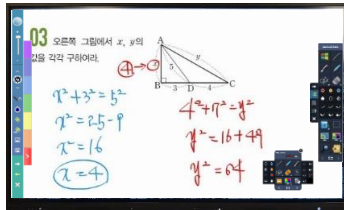 03 오른쪽 그림에서 x, y의
값을 각각 구하여라.
A
y
4 → x
5
B 3 D 4 C
x²+3²=5²
x²=25-9
x²=16
x=4
4²+7²=y²
y²=16+49
y²=64